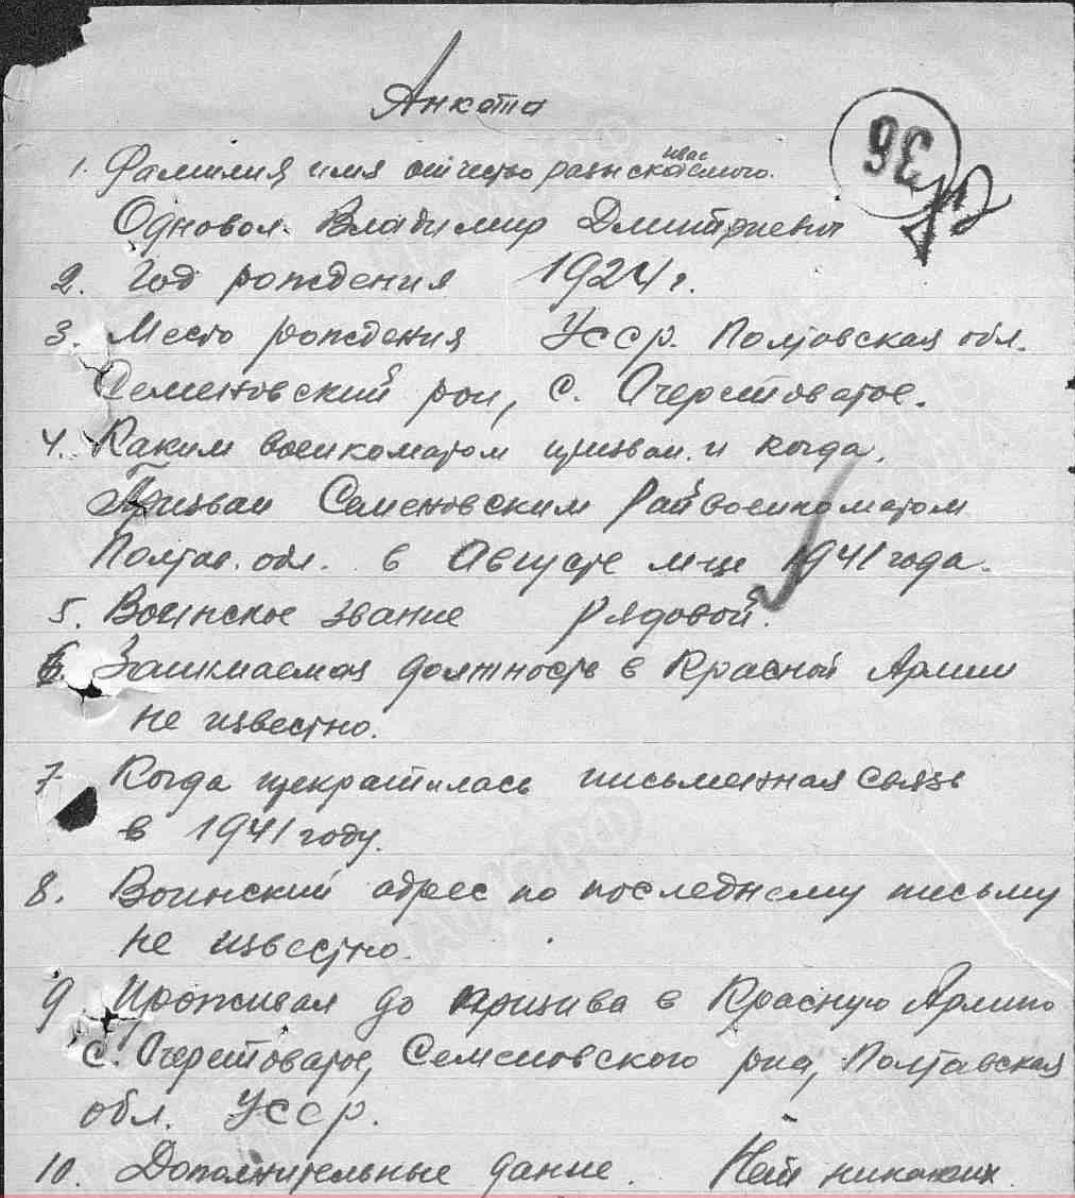 Анкета
36
1. Фамилия, имя отчество разыскиваемого.
Одновол. Владимир Дмитриевич
2. Год рождения 1924 г.
3. Место рождения УССР. Полтовская обл.
Семеновский рон, с. Очеретоватое.
4. Каким военкоматом призван. и когда.
Призван Семеновским Райвоенкоматом
Полтав. обл. в Августе м-це 1941 года.
5. Воинское звание рядовой.
6. Занимаемая должность в Красной Армии
не известно.
7. Когда прекратилась письменная связь
в 1941 году.
8. Воинский адрес по последнему письму
не известно.
9 Проживал до призыва в Красную Армию
с. Очеретоватое, Семеновского р-на, Полтавская
обл. УССР.
10. Дополнительные даные. Нет никаких